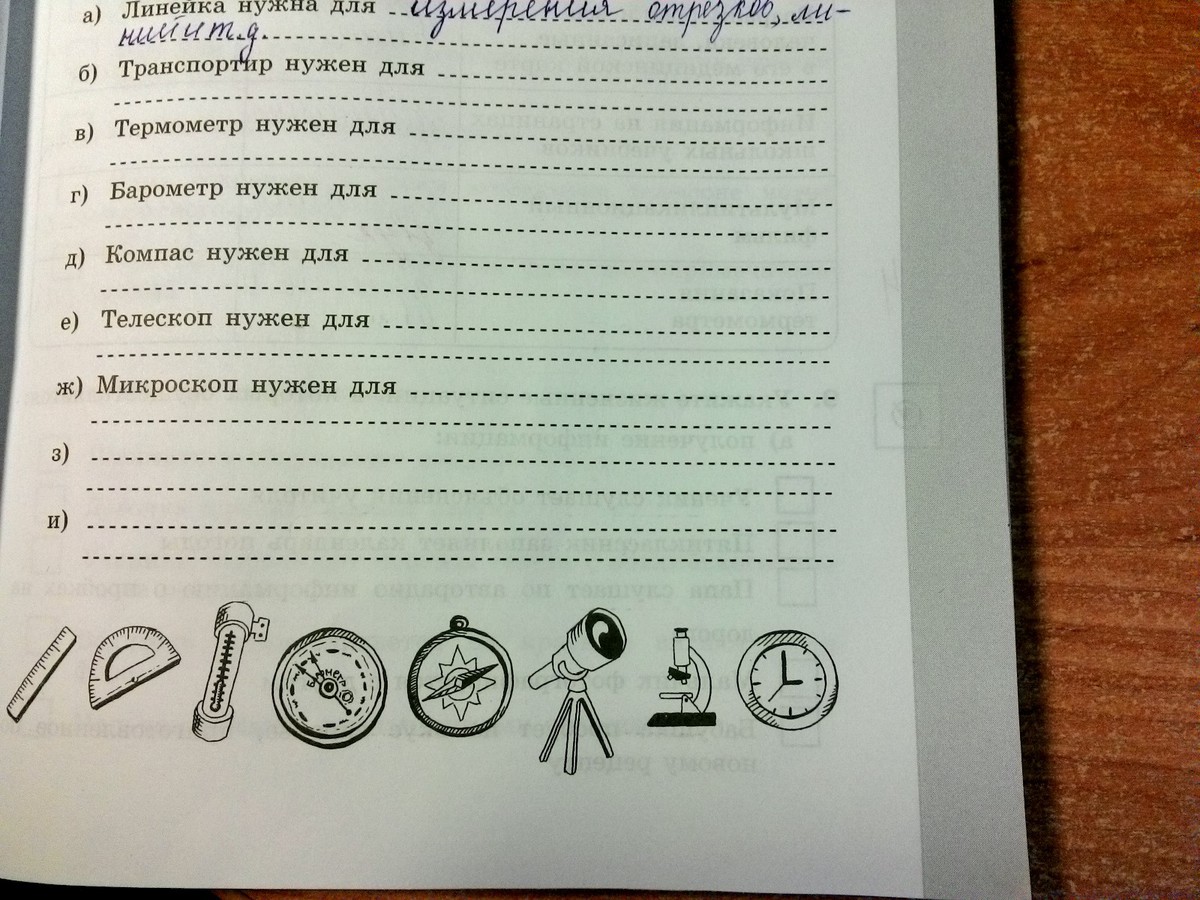 а) Линейка нужна для измерения отрезков, ли-
ний и т.д.
б) Транспортир нужен для
в) Термометр нужен для
г) Барометр нужен для
д) Компас нужен для
е) Телескоп нужен для
ж) Микроскоп нужен для
з)
и)